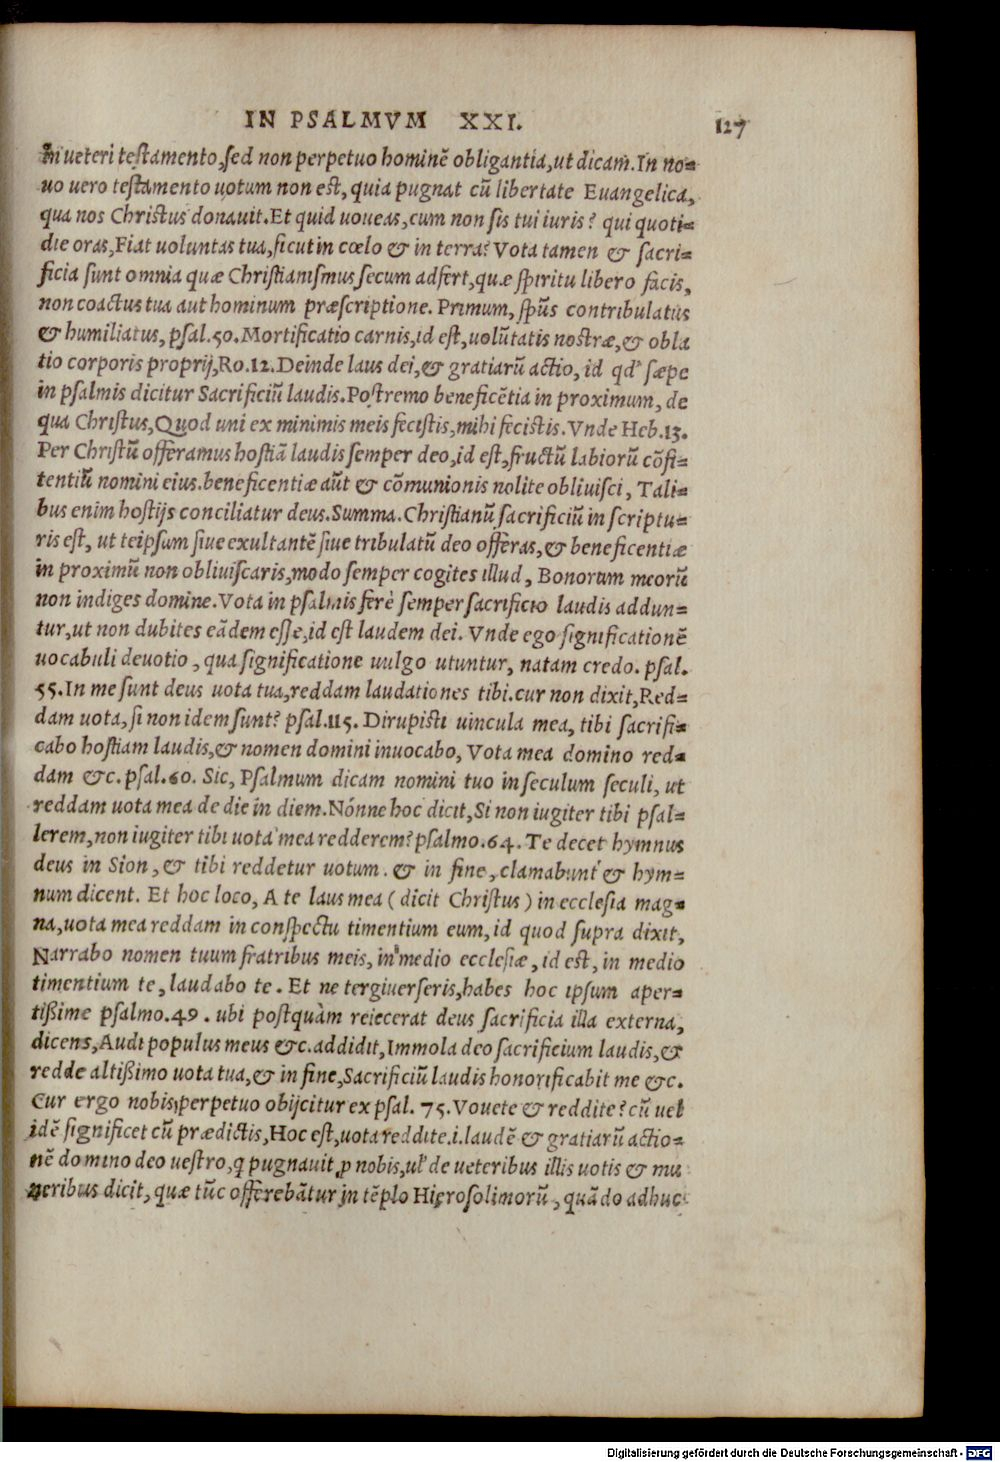 IN PSALMVM XXI. 127
In ueteri testamento, sed non perpetuo hominẽ obligantia, ut dicam. In no=
uo uero testamento uotum non est, quia pugnat cũ libertate Euangelica,
qua nos Christus donauit. Et quid uoueas, cum non sis tui iuris? qui quoti=
die oras, Fiat uoluntas tua, sicut in cœlo & in terra? Vota tamen & sacri=
ficia sunt omnia quæ Christianismus secum adfert, quæ spiritu libero facis,
non coactus tua aut hominum præscriptione. Primum, spũs contribulatus
& humiliatus, psal. 50. Mortificatio carnis, id est, uolũtatis nostræ, & obla
tio corporis proprij, Ro. 12. Deinde laus dei, & gratiarũ actio, id qd' sæpe
in psalmis dicitur Sacrificiũ laudis. Postremo beneficẽtia in proximum, de
qua Christus, Quod uni ex minimis meis fecistis, mihi fecistis. Vnde Heb. 13.
Per Christũ offeramus hostiã laudis semper deo, id est, fructũ labiorũ cõfi=
tentiũ nomini eius. beneficentiæ aũt & cõmunionis nolite obliuisci, Tali=
bus enim hostijs conciliatur deus. Summa. Christianũ sacrificiũ in scriptu=
ris est, ut teipsum siue exultantẽ siue tribulatũ deo offeras, & beneficentiæ
in proximũ non obliuiscaris, modo semper cogites illud, Bonorum meorũ
non indiges domine. Vota in psalmis ferè semper sacrificio laudis addun=
tur, ut non dubites eãdem esse, id est laudem dei. Vnde ego significationẽ
uocabuli deuotio, qua significatione uulgo utuntur, natam credo. psal.
55. In me sunt deus uota tua, reddam laudationes tibi. cur non dixit, Red=
dam uota, si non idem sunt? psal. 115. Dirupisti uincula mea, tibi sacrifi=
cabo hostiam laudis, & nomen domini inuocabo, Vota mea domino red=
dam &c. psal. 60. Sic, Psalmum dicam nomini tuo in seculum seculi, ut
reddam uota mea de die in diem. Nónne hoc dicit, Si non iugiter tibi psal=
lerem, non iugiter tibi uota mea redderem? psalmo. 64. Te decet hymnus
deus in Sion, & tibi reddetur uotum. & in fine, clamabunt & hym=
num dicent. Et hoc loco, A te laus mea (dicit Christus) in ecclesia mag=
na, uota mea reddam in conspectu timentium eum, id quod supra dixit,
Narrabo nomen tuum fratribus meis, in medio ecclesiæ, id est, in medio
timentium te, laudabo te. Et ne tergiuerseris, habes hoc ipsum aper=
tißime psalmo. 49. ubi postquàm reiecerat deus sacrificia illa externa,
dicens, Audi populus meus &c. addidit, Immola deo sacrificium laudis, &
redde altißimo uota tua, & in fine, Sacrificiũ laudis honorificabit me &c.
Cur ergo nobis perpetuo obijcitur ex psal. 75. Vouete & reddite? cũ uel
idẽ significet cũ prædictis, Hoc est, uota reddite .i. laudẽ & gratiarũ actio=
nẽ domino deo uestro, q pugnauit p nobis, ul' de ueteribus illis uotis & mu
neribus dicit, quæ tũc offerebãtur in tẽplo Hierosolimorũ, quãdo adhuc
Digitalisierung gefördert durch die Deutsche Forschungsgemeinschaft - DFG